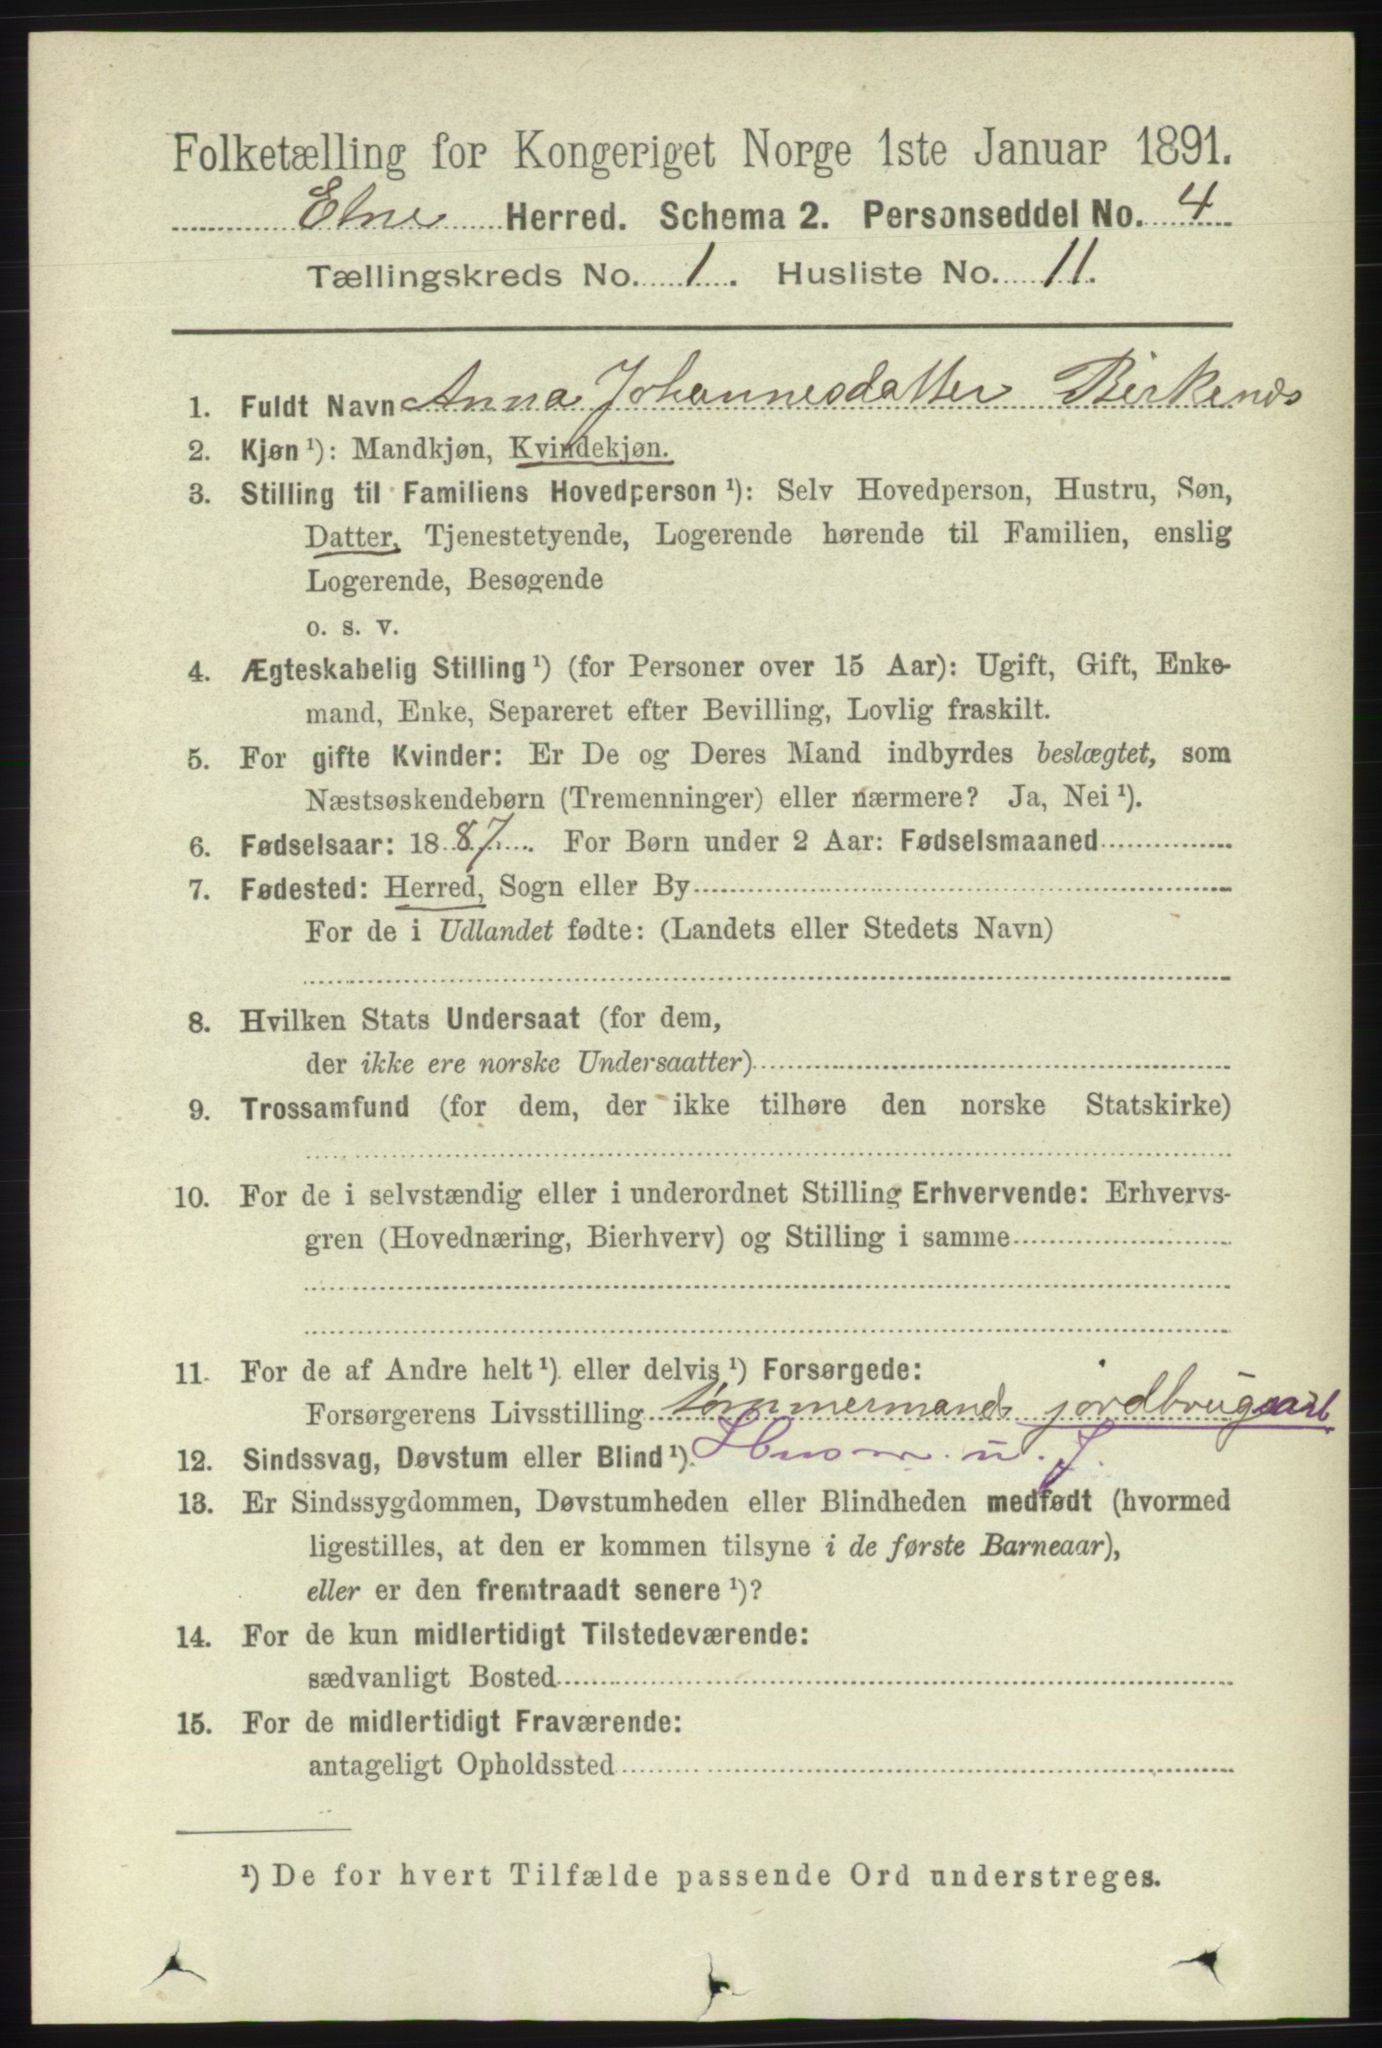 Folketælling for Kongeriget Norge 1ste Januar 1891.
Etne Herred. Schema 2. Personseddel No. 4
Tællingskreds No. 1. Husliste No. 11.
1. Fuldt Navn Anna Johannesdatter Birkenes
2. Kjøn ¹): Mandkjøn, Kvindekjøn.
3. Stilling til Familiens Hovedperson ¹): Selv Hovedperson, Hustru, Søn,
Datter, Tjenestetyende, Logerende hørende til Familien, enslig
Logerende, Besøgende
o. s. v.
4. Ægteskabelig Stilling ¹) (for Personer over 15 Aar): Ugift, Gift, Enke-
mand, Enke, Separeret efter Bevilling, Lovlig fraskilt.
5. For gifte Kvinder: Er De og Deres Mand indbyrdes beslægtet, som
Næstsøskendebørn (Tremenninger) eller nærmere? Ja, Nei ¹).
6. Fødselsaar: 1887. For Børn under 2 Aar: Fødselsmaaned
7. Fødested: Herred, Sogn eller By
For de i Udlandet fødte: (Landets eller Stedets Navn)
8. Hvilken Stats Undersaat (for dem,
der ikke ere norske Undersaatter)
9. Trossamfund (for dem, der ikke tilhøre den norske Statskirke)
10. For de i selvstændig eller i underordnet Stilling Erhvervende: Erhvervs-
gren (Hovednæring, Bierhverv) og Stilling i samme
11. For de af Andre helt ¹) eller delvis ¹) Forsørgede:
Forsørgerens Livsstilling tømmermand jordbrugsarb.
12. Sindssvag, Døvstum eller Blind ¹). Husm. u. J.
13. Er Sindssygdommen, Døvstumheden eller Blindheden medfødt (hvormed
ligestilles, at den er kommen tilsyne i de første Barneaar),
eller er den fremtraadt senere ¹)?
14. For de kun midlertidigt Tilstedeværende:
sædvanligt Bosted
15. For de midlertidigt Fraværende:
antageligt Opholdssted
¹) De for hvert Tilfælde passende Ord understreges.